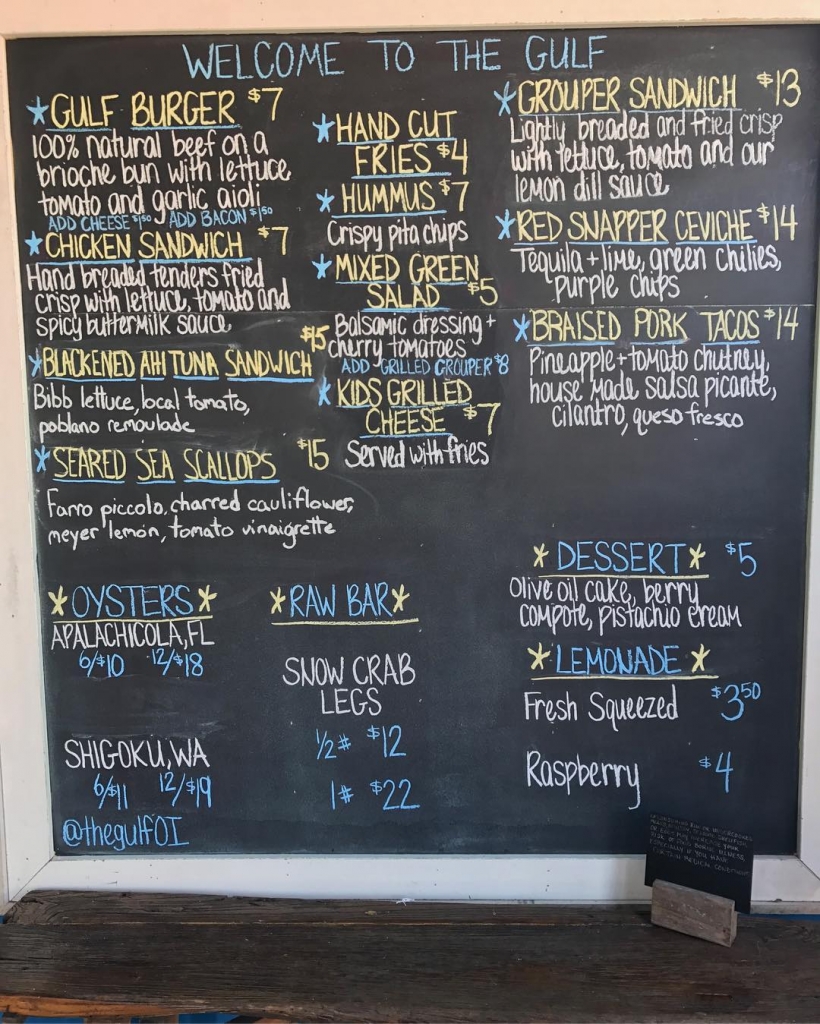 WELCOME TO THE GULF
*GULF BURGER $7
100% natural beef on a
brioche bun with lettuce,
tomato and garlic aioli
ADD CHEESE $1.50 ADD BACON $1.50
*CHICKEN SANDWICH $7
Hand breaded tenders fried
crisp with lettuce, tomato and
spicy buttermilk sauce
*BLACKENED AHI TUNA SANDWICH $15
Bibb lettuce, local tomato,
poblano remoulade
*SEARED SEA SCALLOPS $15
Farro piccolo, charred cauliflower,
meyer lemon, tomato vinaigrette
*HAND CUT
FRIES $4
*HUMMUS $7
Crispy pita chips
*MIXED GREEN
SALAD $5
Balsamic dressing +
cherry tomatoes
ADD GRILLED GROUPER $8
*KIDS GRILLED
CHEESE $7
Served with fries
*GROUPER SANDWICH $13
Lightly breaded and fried crisp
with lettuce, tomato and our
lemon dill sauce
*RED SNAPPER CEVICHE $14
Tequila + lime, green chilies,
purple chips
*BRAISED PORK TACOS $14
Pineapple + tomato chutney,
house made salsa picante,
cilantro, queso fresco
*OYSTERS*
APALACHICOLA, FL
6/$10 12/$18
SHIGOKU, WA
6/$11 12/$19
@thegulfOI
*RAW BAR*
SNOW CRAB
LEGS
1/2# $12
1# $22
*DESSERT* $5
Olive oil cake, berry
compote, pistachio cream
*LEMONADE*
Fresh Squeezed $3.50
Raspberry $4
OR EGGS MAY INCREASE YOUR
RISK OF FOOD BORNE ILLNESS,
ESPECIALLY IF YOU HAVE
CERTAIN MEDICAL CONDITIONS